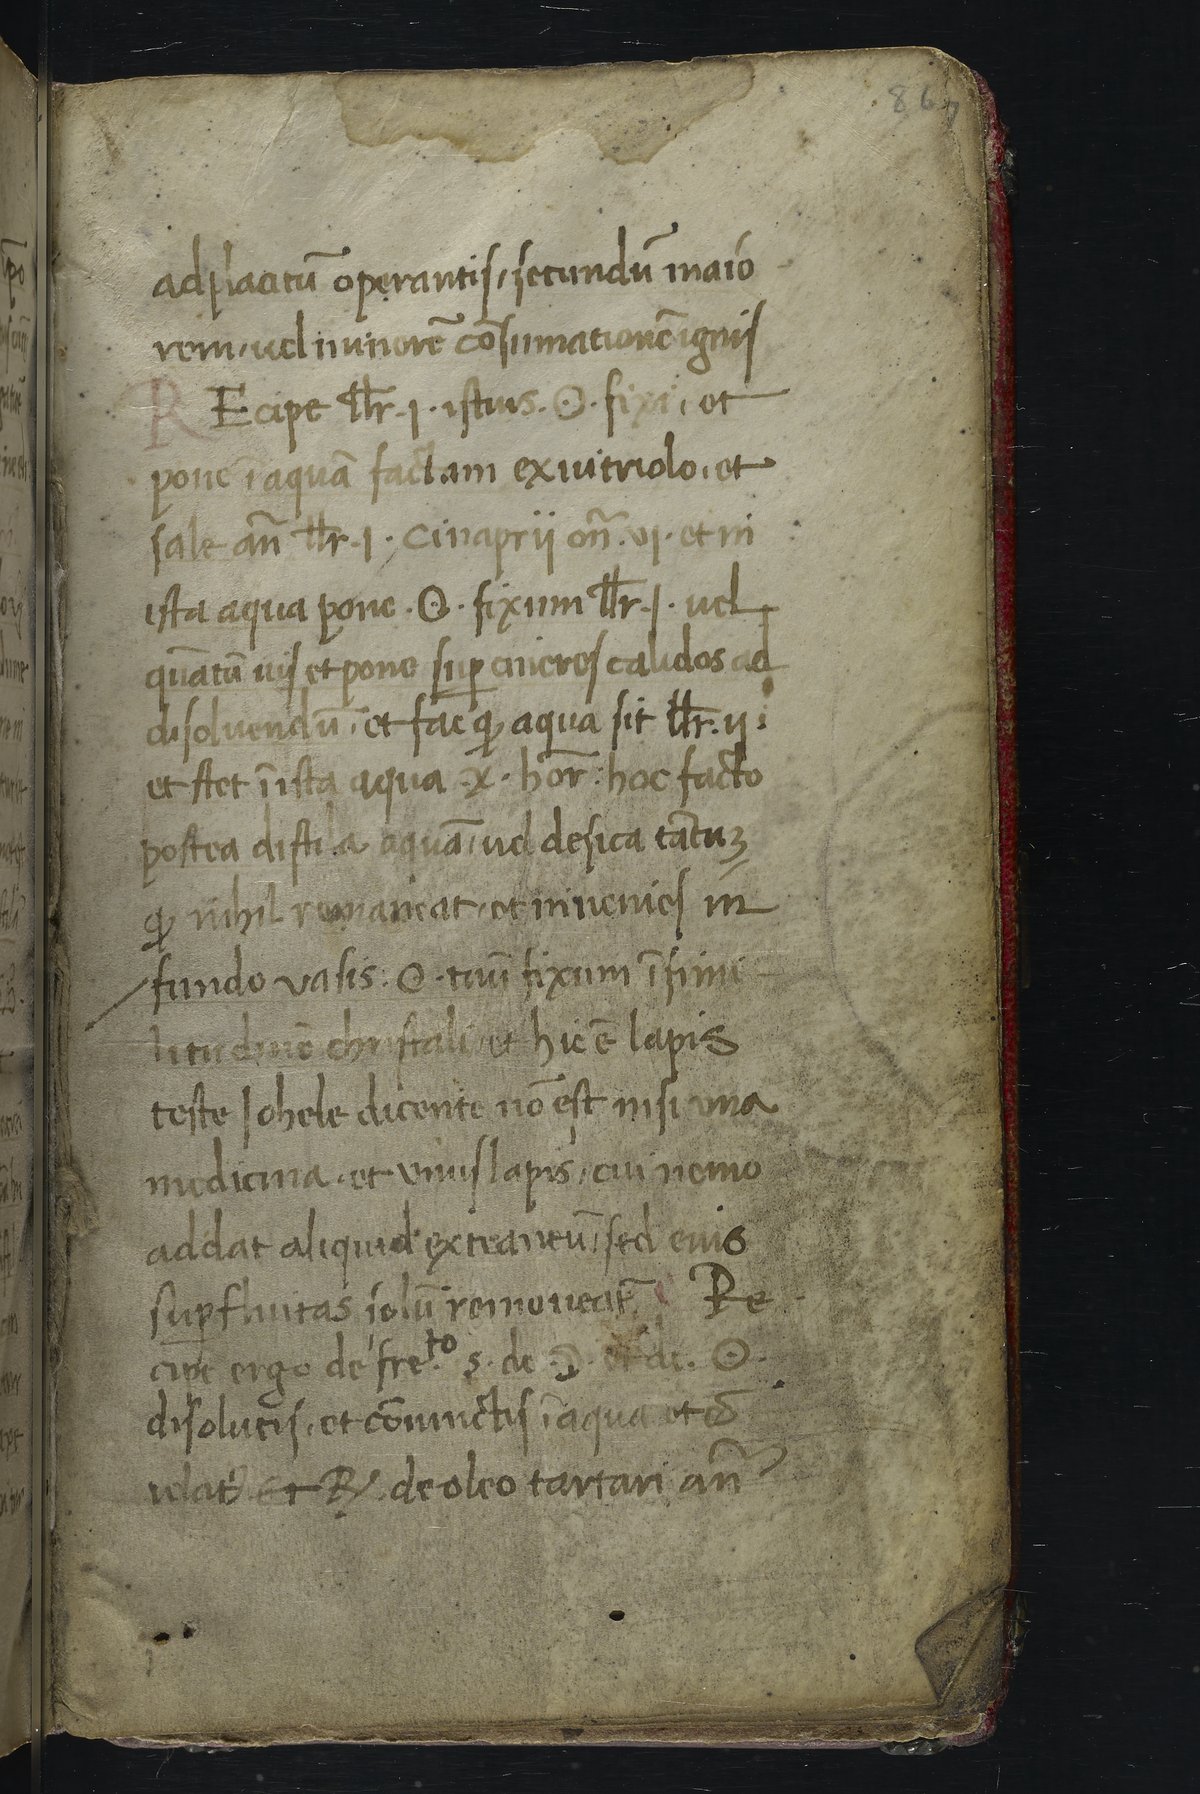 86
ad placitū operantis, secundū maio
rem, uel minorē cōsumationē ignis
REcipe ll̄r. j. istius. ☉. fixi, et
pone ī aquā factam ex uitriolo, et
sale an̄ ll̄r. j. Cinaprii on̄. vj. et in
ista aqua pone. ☉. fixum ll̄r. j. uel
quātū uis et pone suꝑ cineres calidos ad
disoluendū, et fac ꝙ aqua sit ll̄r. ij.
et stet ī ista aqua .x. hor̄: hoc facto
postea distila aquā, uel desica tātuꝫ
ꝙ nihil remaneat, et inuenies in
fundo vasis: ☉. tuū fixum ī simi
litudinē christali et hic ē lapis
teste Johele dicente nō est nisi vna
medicina, et vnus lapis, cui nemo
addat aliquid exteantū, sed euis
suꝑfluitas solū remoueat᷑ Re
cipe ergo de fre.to s. de ☽. et de. ☉.
disolutis, et cōiunctis ī aqua et
Et ℞. de oleo tartari an̄